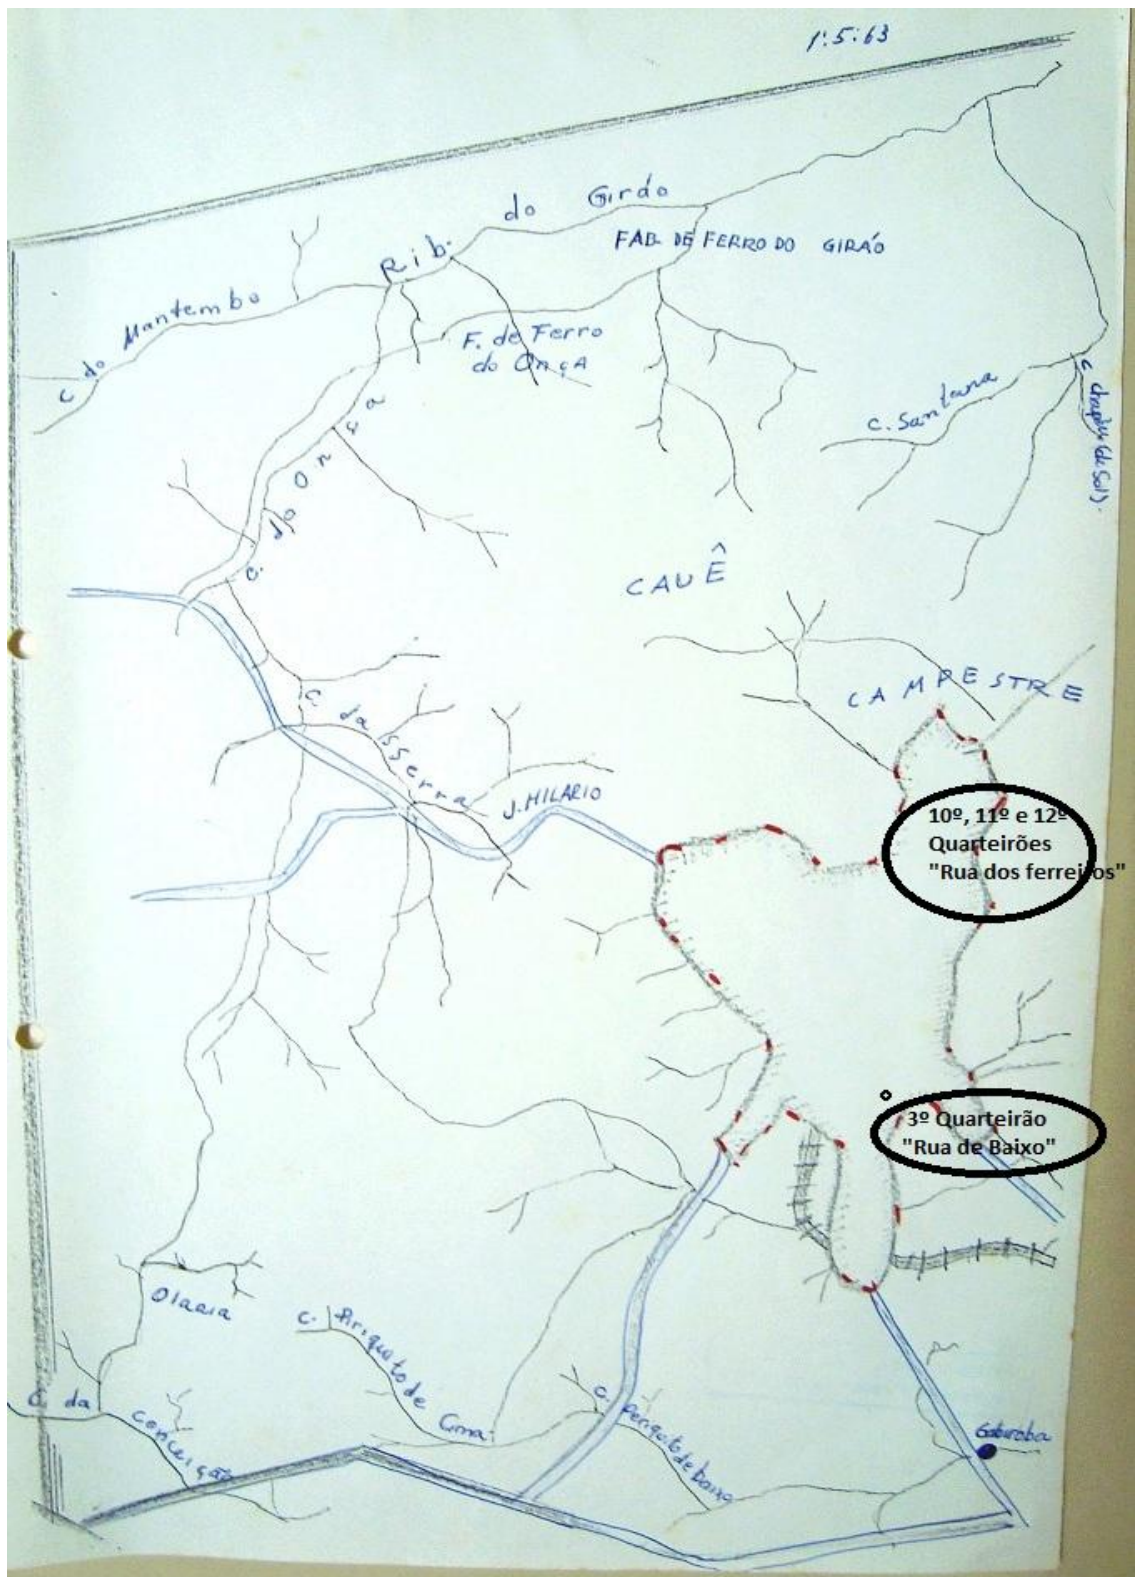 1:5:63
Rib. do Girão
FAB. DE FERRO DO GIRÃO
C. do Mantembo
F. de Ferro
do Onça
C. Santana
C. Chapéu (de Sol).
C. do Onça
CAUÊ
CAMPESTRE
C. da SSerra
J. HILARIO
10º, 11º e 12º
Quarteirões
"Rua dos ferreiros"
3º Quarteirão
"Rua de Baixo"
Olaria
C. Piriquito de Cima
C. da Conceição
C. Periquito de baixo
Gabiroba